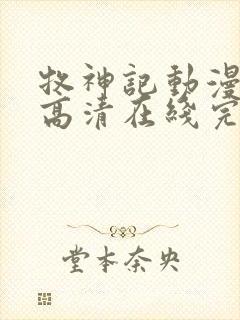 牧神記動漫
高清在綫完
堂本奈央